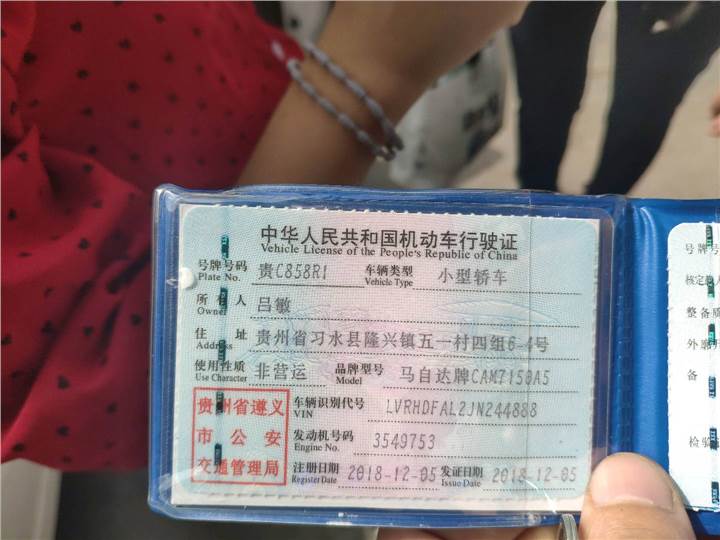 中华人民共和国机动车行驶证
Vehicle License of the People's Republic of China
号牌号码 贵C858R1 车辆类型 小型轿车
Plate No. Vehicle Type
所有人 吕敏
Owner
住址 贵州省习水县隆兴镇五一村四组6-4号
Address
使用性质 非营运 品牌型号 马自达牌CAM7150A5
Use Character Model
贵州省遵义
市公安
交通管理局
车辆识别代号 LVRHDFAL2JN244888
VIN
发动机号码 3549753
Engine No.
注册日期 2018-12-05 发证日期 2018-12-05
Register Date Issue Date
号牌号
核定载人
整备质
外廓尺
备
检验